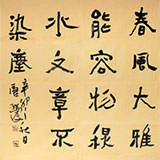 春風大雅
能容物秋
水文章不
染塵
辛卯秋日